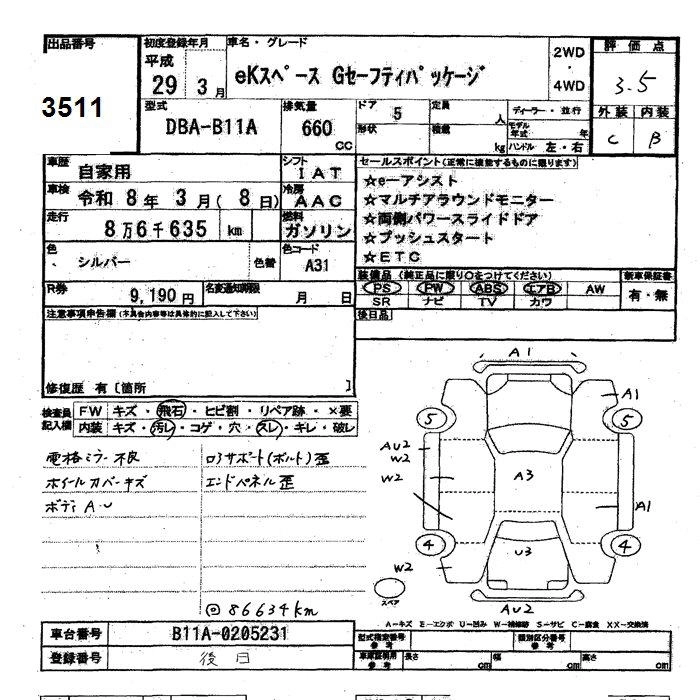 出品番号
3511
初度登録年月
平成
29 3月
車名・グレード
eKスペース Gセーフティパッケージ
2WD
・
4WD
評価点
3.5
外装 内装
C B
型式
DBA-B11A
排気量
660
CC
ドア 5
形状
定員
人
積載
kg
ディーラー・並行
モデル年式 年
ハンドル 左・右
車歴
自家用
シフト
IAT
車検
令和 8年 3月( 8日)
冷房
AAC
走行
8万6千635 km
燃料
ガソリン
色
シルバー
色替
色コード
A31
R券
9,190円
名変通知期限
月 日
セールスポイント(正常に機能するものに限ります)
☆e-アシスト
☆マルチアラウンドモニター
☆両側パワースライドドア
☆プッシュスタート
☆ETC
装備品(純正品に限り○をつけてください)
新車保証書
PS PW ABS エアB AW
SR ナビ TV カワ
有・無
後日品
注意事項申告欄(不具合内容等は具体的に記入して下さい)
修復歴 有〔箇所 〕
検査員記入欄
FW キズ・飛石・ヒビ割・リペア跡・×要
内装 キズ・汚レ・コゲ・穴・スレ・キレ・破レ
電格ミラー不良
ホイールカバーキズ
ボディ A・U
コアサポート(ボルト)歪
エンドパネル歪
◎86634km
A1
A1
5
5
AU2
W2
W2
A3
A1
4
4
U3
W2
スペア
AU2
A-キズ E-エクボ U-凹み W-補修跡 S-サビ C-腐食 XX-交換済
車台番号
B11A-0205231
登録番号
後日
型式指定番号
参考
類別区分番号
参考
車庫証明用
参考
長さ cm
幅 cm
高さ cm